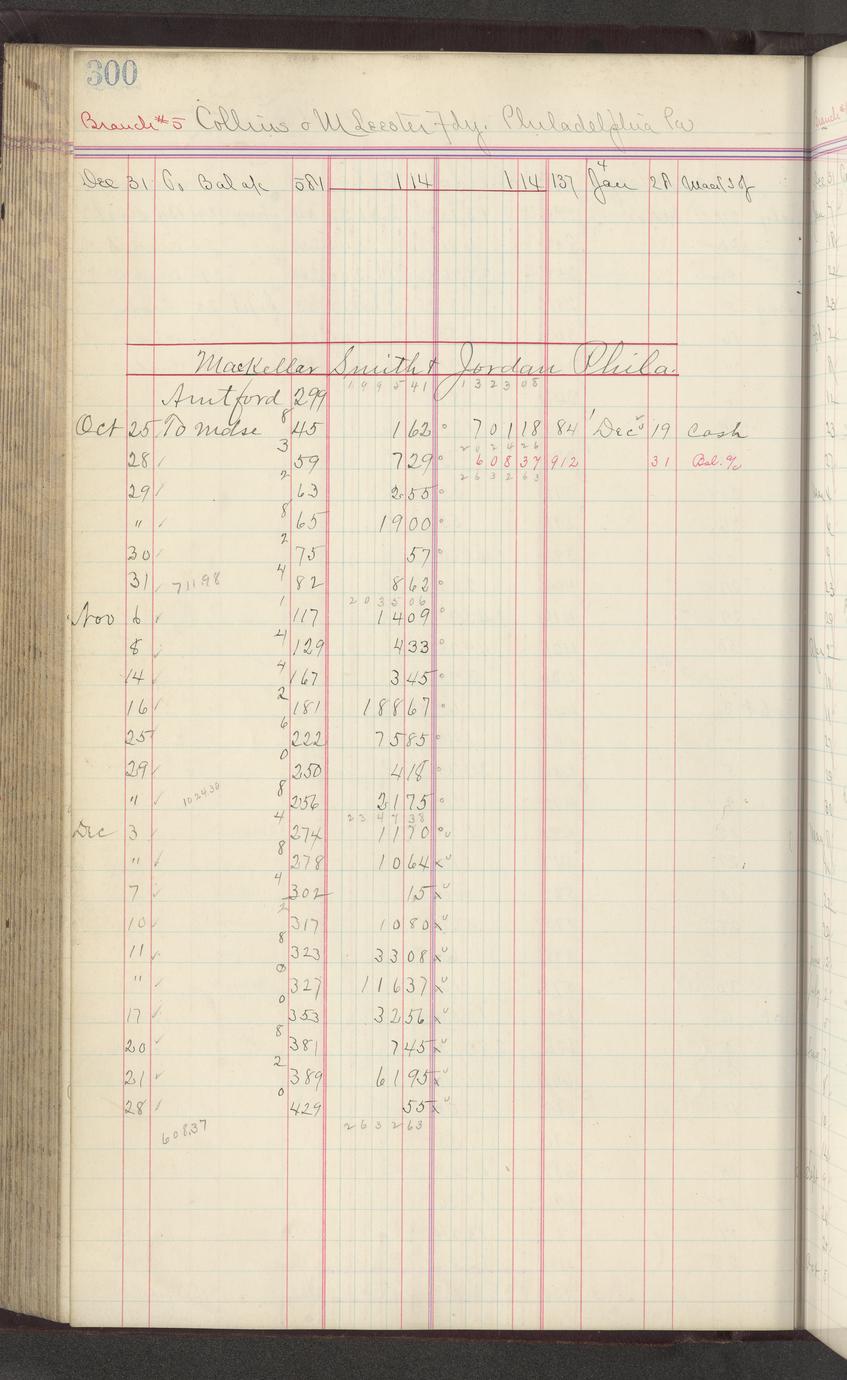 300
Branch #5 Collins & McLeester Fdy. Philadelphia Pa
Dec 31 To Bal a/c 581 1 14 1 14 137 Jan 4 28
MacKellar Smith & Jordan Phila.
Amt ford 299 1995 41 1323 08
Oct 25 To Mdse 8 45 1 62 701 18 84 Dec 19 Cash
2024 26
28 3 59 7 29 608 37 912 31 Bal. a/c
2632 63
29 2 63 2 55
" 8 65 19 00
30 2 75 57
31 711.98 4 82 8 62
2035 06
Nov 6 1 117 14 09
8 4 129 4 33
14 4 167 3 45
16 2 181 188 67
25 6 222 75 85
29 0 250 4 18
" 1024.30 8 256 21 75
2347 38
Dec 3 4 274 11 70
" 8 278 10 64
7 4 302 15
10 2 317 10 80
11 8 323 33 08
" 0 327 116 37
17 0 353 32 56
20 8 381 7 45
21 2 389 61 95
28 0 429 55
608.37 2632 63